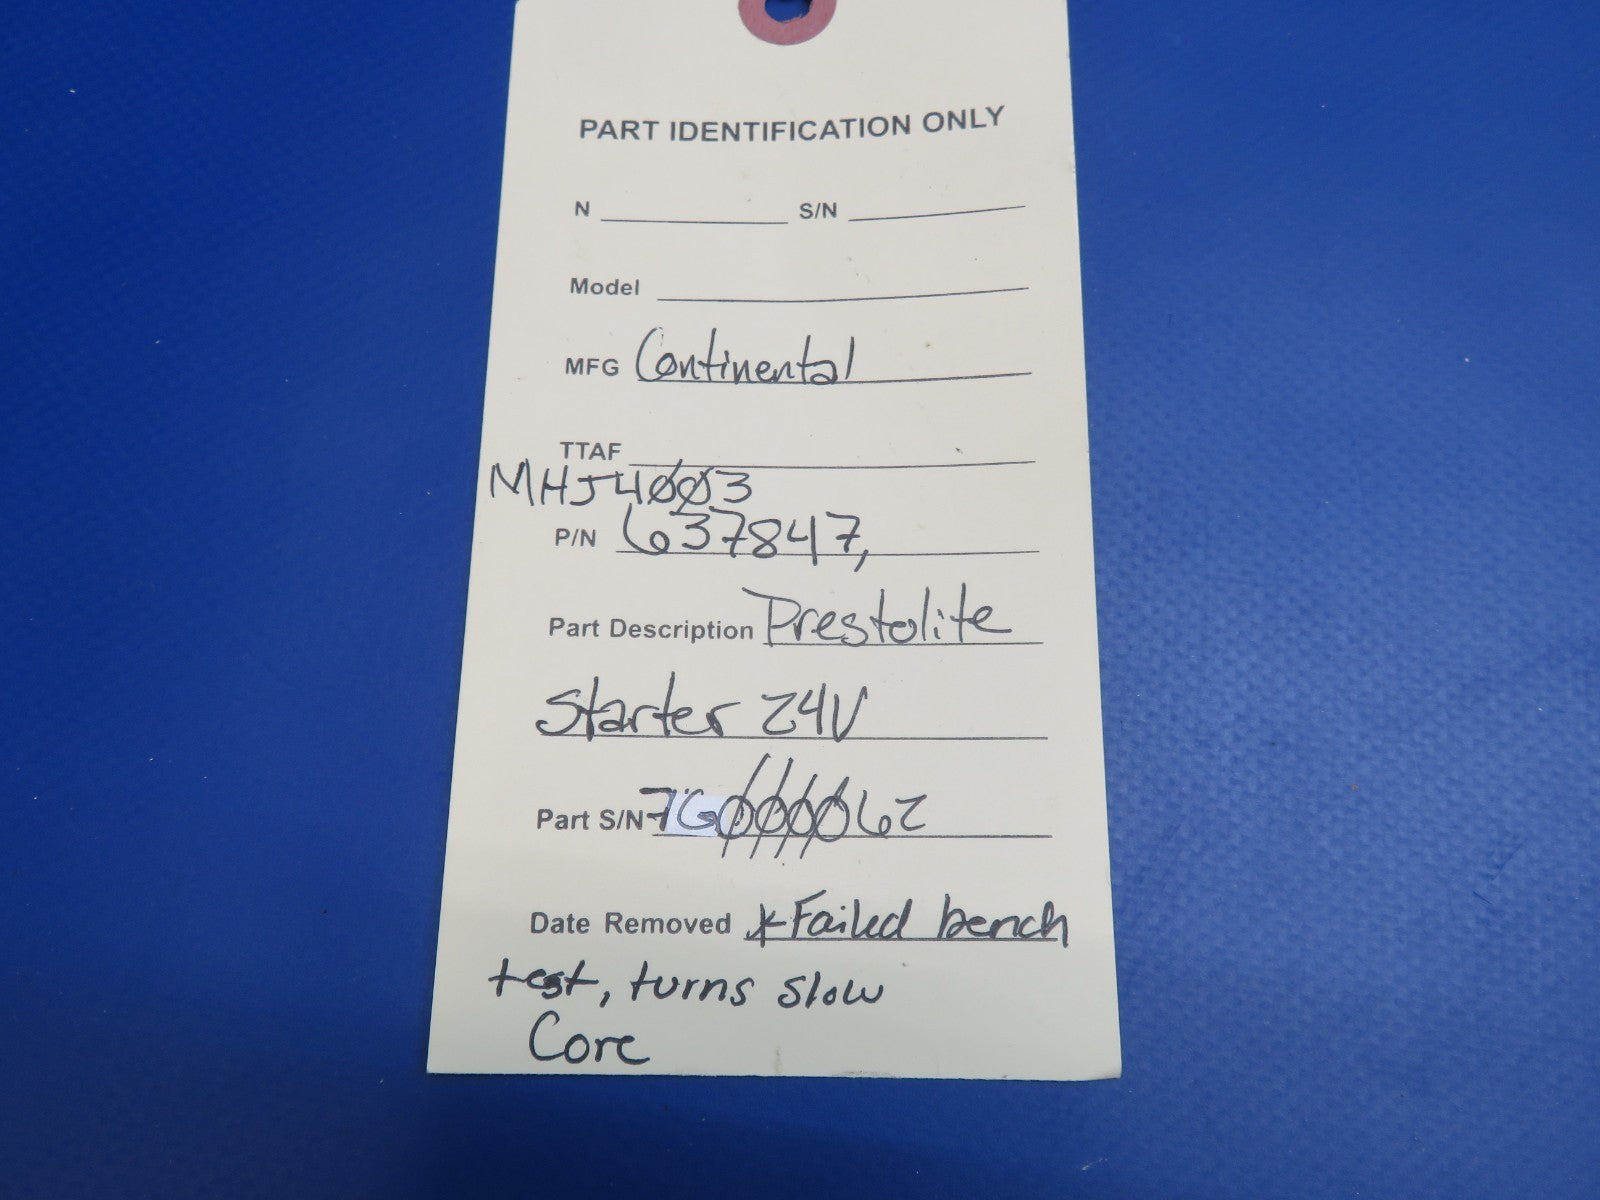 PART IDENTIFICATION ONLY
N S/N
Model
MFG Continental
TTAF
MHJ4003
P/N 637847,
Part Description Prestolite
Starter 24V
Part S/N 7G000062
Date Removed *Failed bench
test, turns slow
Core